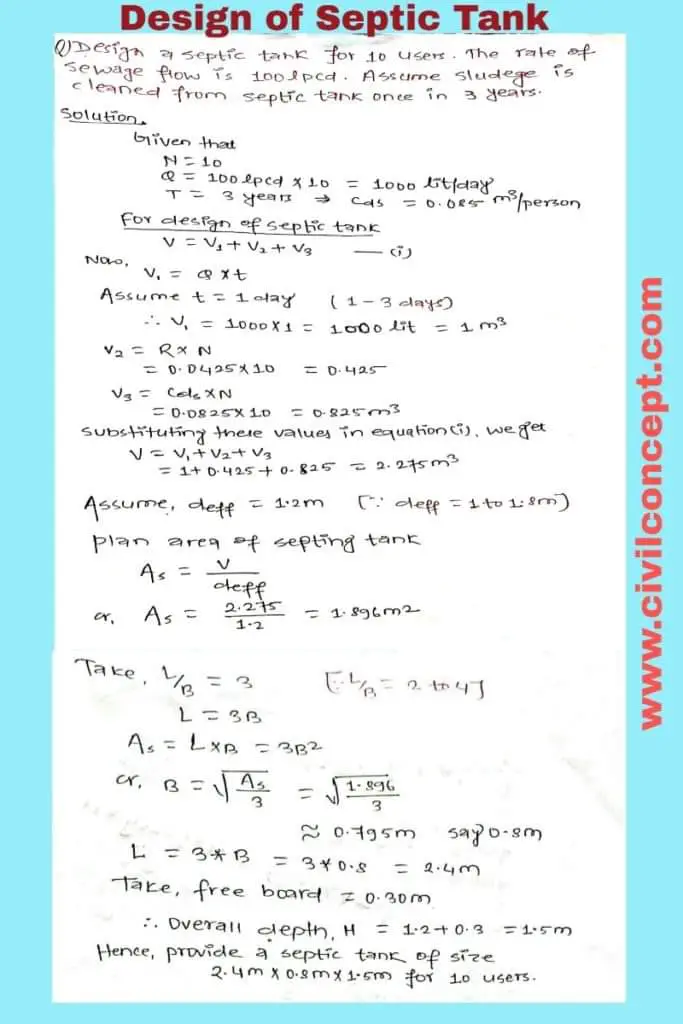 Design of Septic Tank
Q) Design a septic tank for 10 users. The rate of
sewage flow is 100 lpcd. Assume sludege is
cleaned from septic tank once in 3 years.
Solution.
Given that
N = 10
Q = 100 lpcd × 10 = 1000 lit/day
T = 3 years ⇒ Cds = 0.085 m³/person
For design of septic tank
V = V₁ + V₂ + V₃ — (i)
Now,
V₁ = Q × t
Assume t = 1 day (1 - 3 days)
∴ V₁ = 1000 × 1 = 1000 lit = 1 m³
V₂ = R × N
= 0.0425 × 10 = 0.425
V₃ = Cds × N
= 0.0825 × 10 = 0.825 m³
Substituting these values in equation (i), we get
V = V₁ + V₂ + V₃
= 1 + 0.425 + 0.825 = 2.275 m³
Assume, deff = 1.2m [∵ deff = 1 to 1.8m)
plan area of septing tank
As = V/deff
or, As = 2.275/1.2 = 1.896 m2
Take, L/B = 3 [∵ L/B = 2 to 4]
L = 3B
As = L × B = 3B²
or, B = √(As/3) = √(1.896/3)
≈ 0.795m say 0.8m
L = 3 * B = 3 * 0.8 = 2.4m
Take, free board = 0.30m
∴ Overall depth, H = 1.2 + 0.3 = 1.5m
Hence, provide a septic tank of size
2.4m × 0.8m × 1.5m for 10 users.
www.civilconcept.com